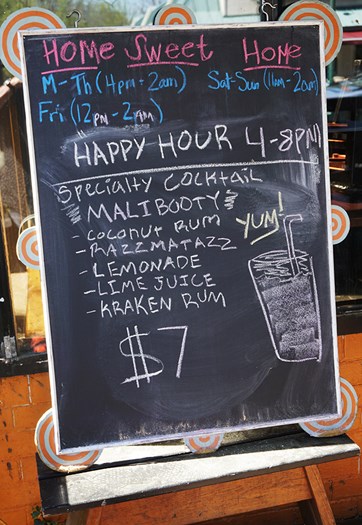 Home Sweet Home
M-Th (4pm-2am) Sat-Sun (11am-2am)
Fri (12pm-2am)
HAPPY HOUR 4-8PM
Specialty Cocktail
MALIBOOTY
YUM!
- Coconut Rum
- RAZZMATAZZ
- LEMONADE
- LIME JUICE
- KRAKEN RUM
$7